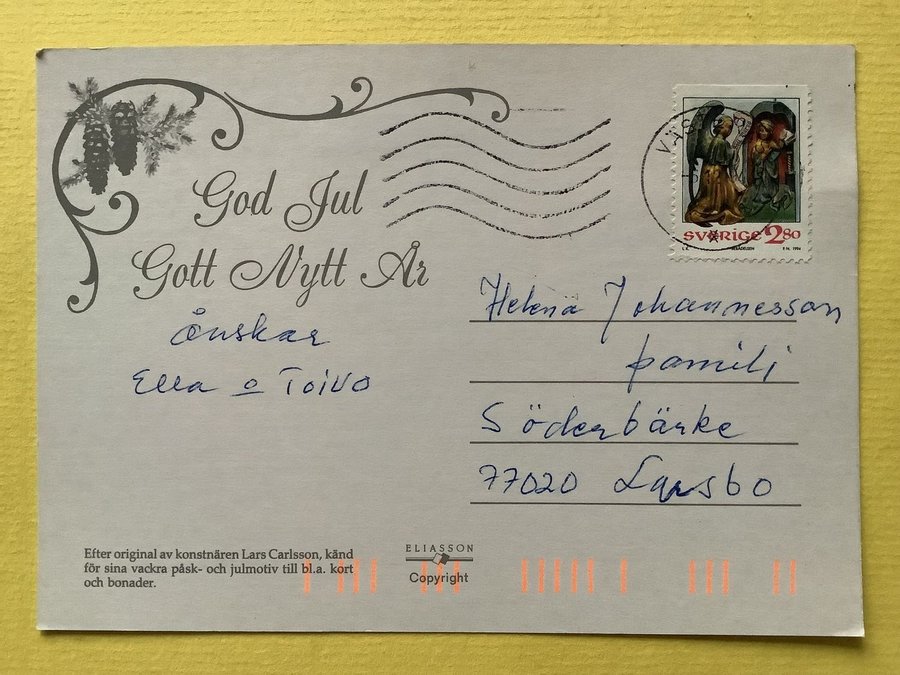 God Jul
Gott Nytt År
önskar
Ella o Toivo
SVERIGE 2.80
1994
Helena Johannesson
familj
Söderbärke
77020 Larsbo
Efter original av konstnären Lars Carlsson, känd
för sina vackra påsk- och julmotiv till bl.a. kort
och bonader.
ELIASSON
Copyright